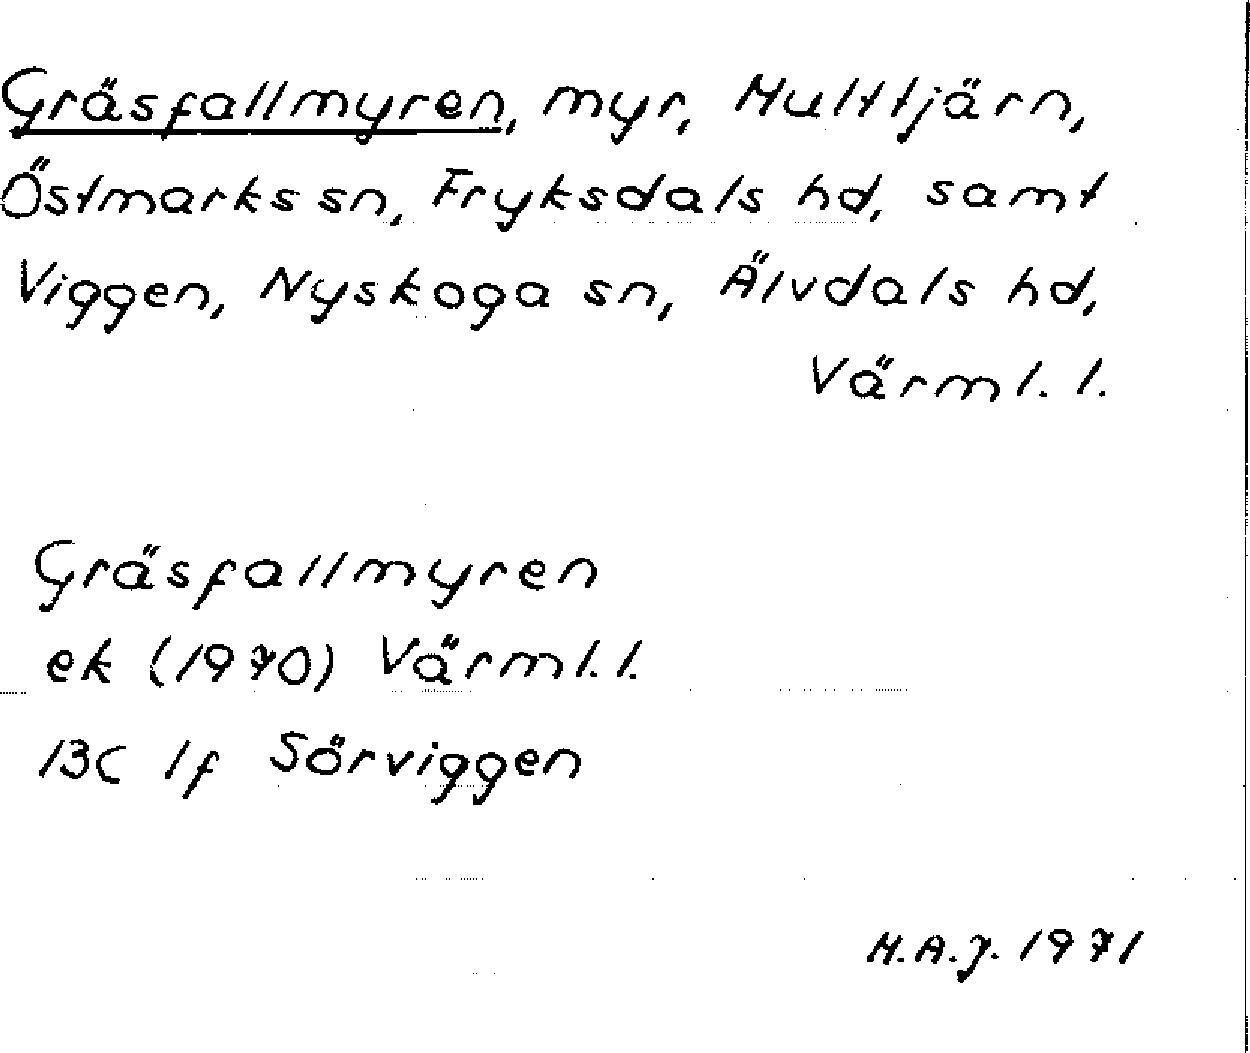 Gräsfallmyren, myr, Multtjärn,
Östmarks sn, Fryksdals hd, samt
Viggen, Nyskoga sn, Älvdals hd,
Värml. l.
Gräsfallmyren
ek (1970) Värml. l.
13C 1f Sörviggen
M.A.J. 1971